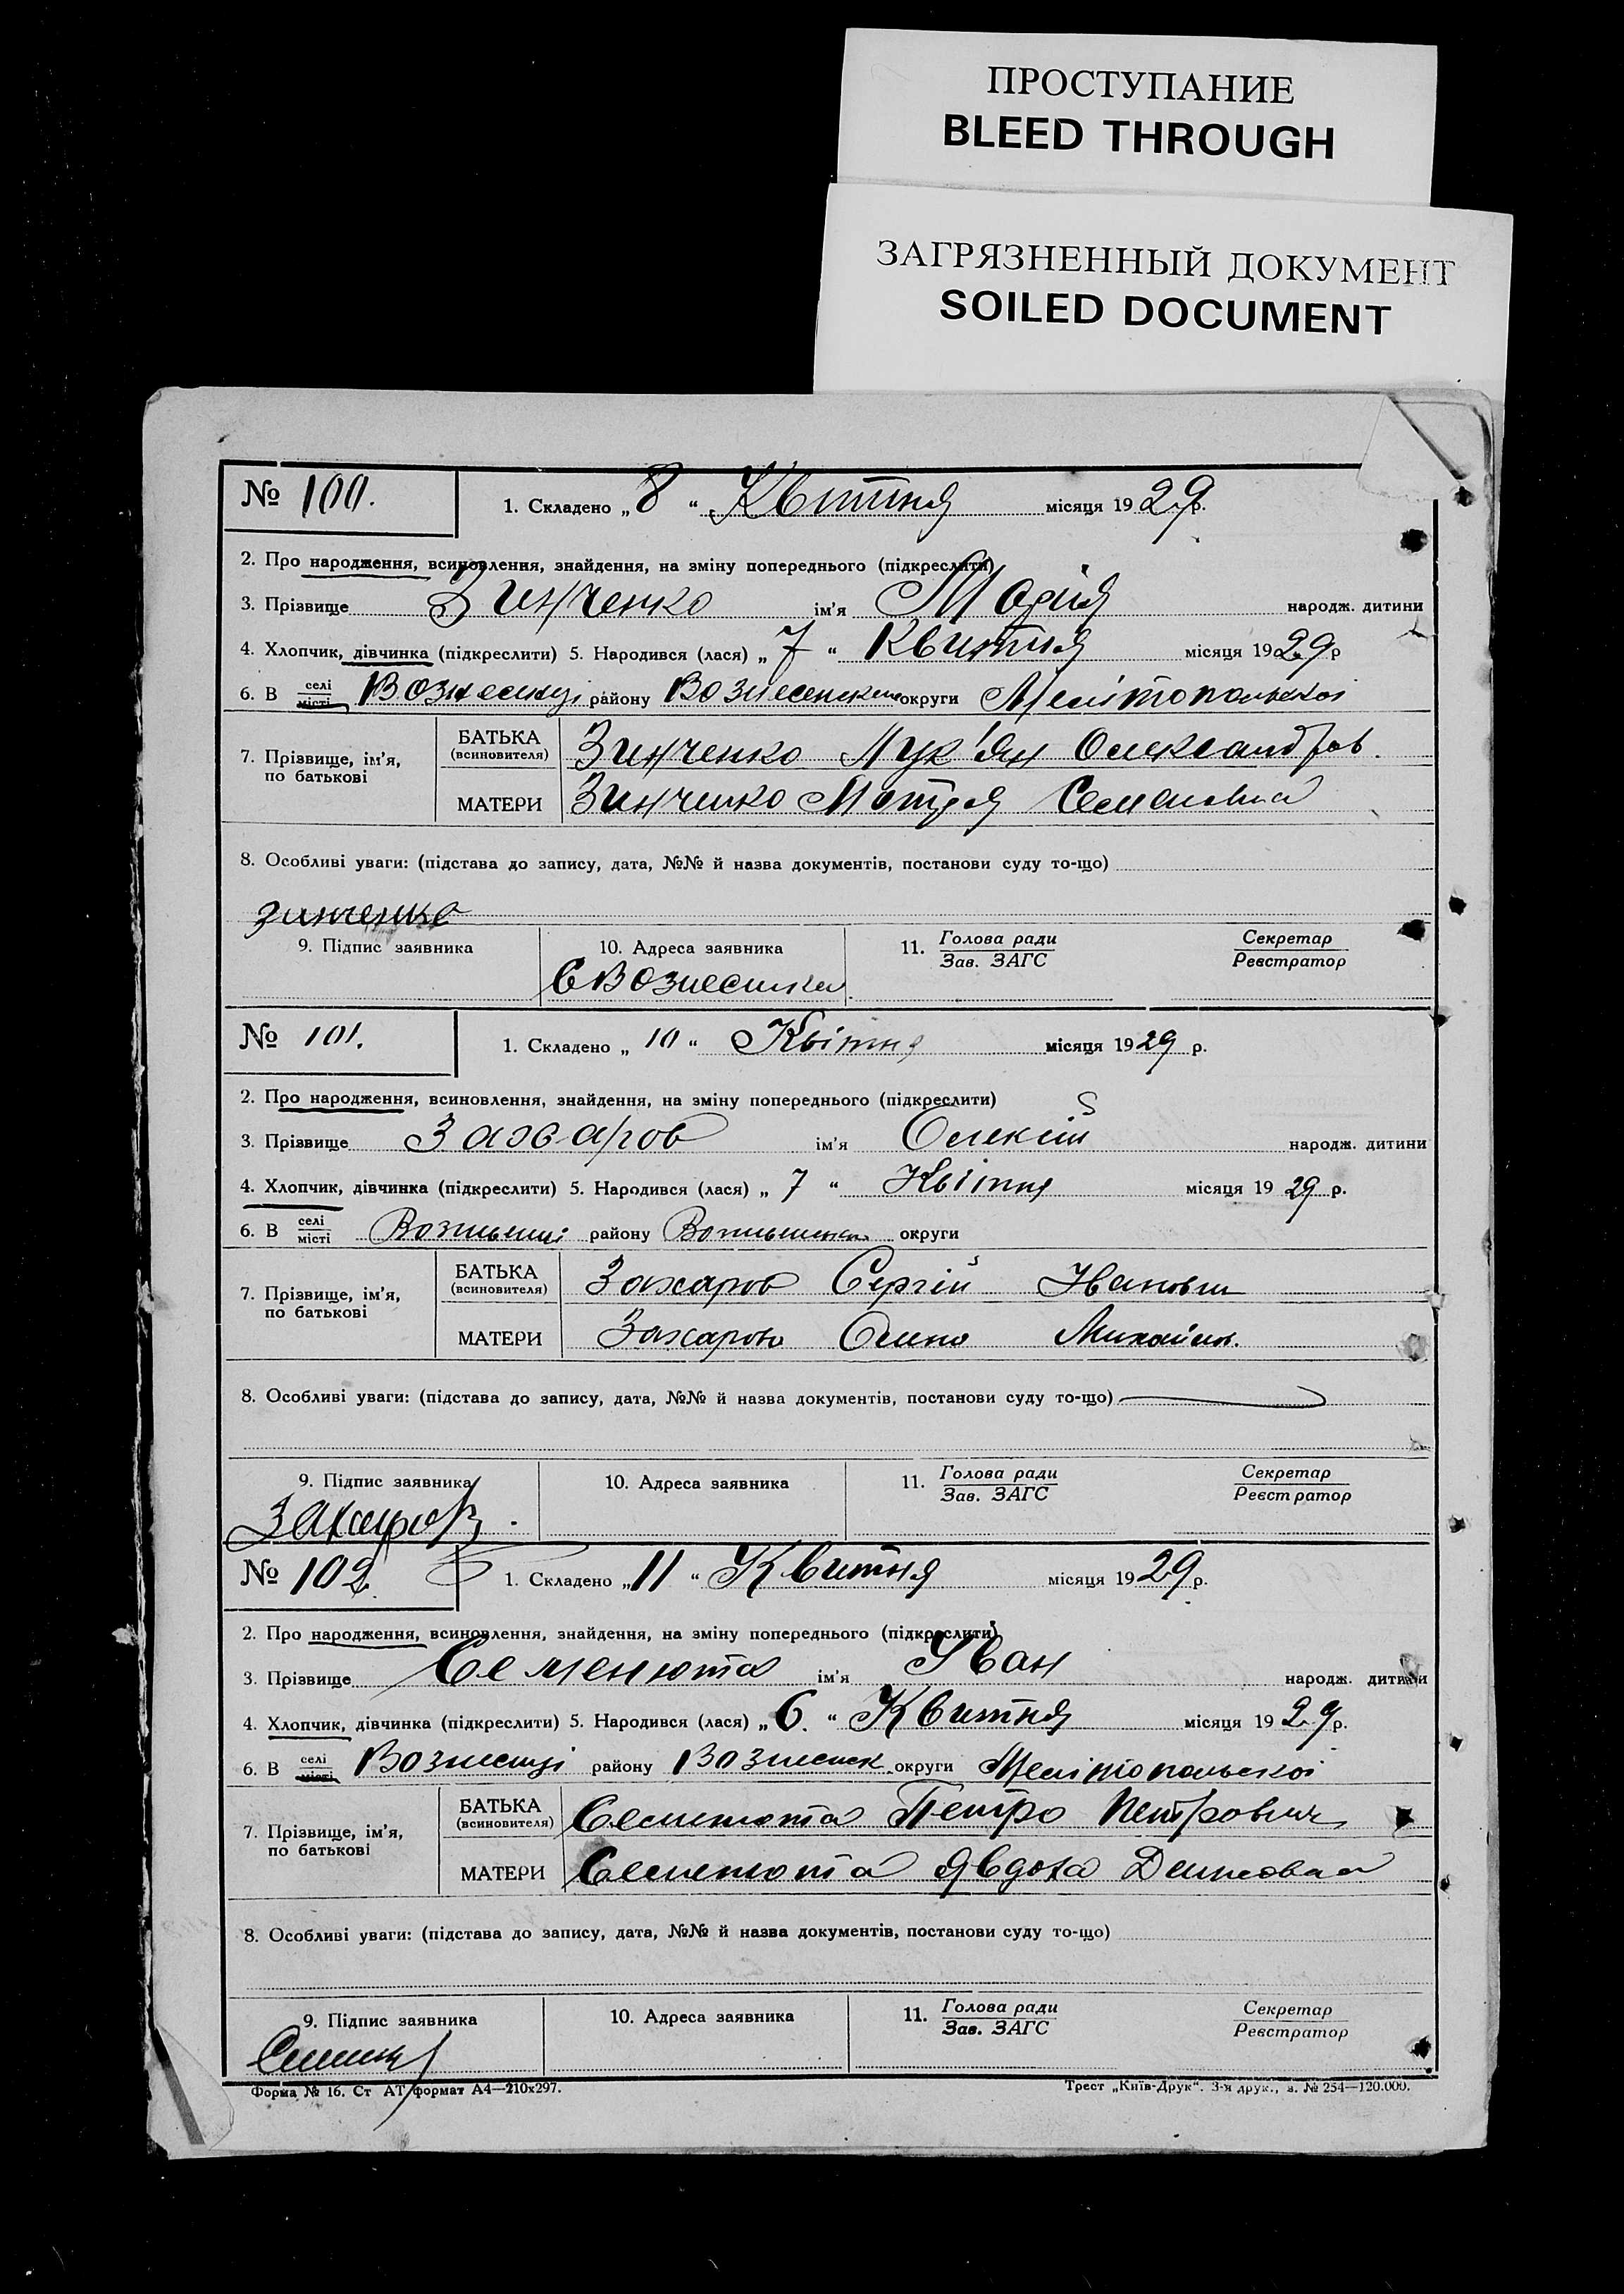 ПРОСТУПАНИЕ
BLEED THROUGH
ЗАГРЯЗНЕННЫЙ ДОКУМЕНТ
SOILED DOCUMENT
№ 100. 1. Складено „ 8 “ Квитня місяця 1929 р.
2. Про народження, всиновлення, знайдення, на зміну попереднього (підкреслити)
3. Прізвище Зинченко ім'я Марія народж. дитини
4. Хлопчик, дівчинка (підкреслити) 5. Народився (лася) „ 7 “ Квитня місяця 1929 р
6. В селі місті Вознесинці району Вознесенскаго округи Мелітопольскоі
7. Прізвище, ім'я, по батькові БАТЬКА (всиновителя) Зинченко Лук'ян Олександров.
МАТЕРИ Зинченко Мотря Семеновна
8. Особливі уваги: (підстава до запису, дата, №№ й назва документів, постанови суду то-що)
Зинченко
9. Підпис заявника 10. Адреса заявника 11. Голова ради Зав. ЗАГС Секретар Реєстратор
С Вознесинка
№ 101. 1. Складено „ 10 “ Квітня місяця 1929 р.
2. Про народження, всиновлення, знайдення, на зміну попереднього (підкреслити)
3. Прізвище Захаров ім'я Олексій народж. дитини
4. Хлопчик, дівчинка (підкреслити) 5. Народився (лася) „ 7 “ Квітня місяця 1929 р.
6. В селі місті району округи
7. Прізвище, ім'я, по батькові БАТЬКА (всиновителя) Захаров Сергій Иванович
МАТЕРИ Захарова Олена Михайлов.
8. Особливі уваги: (підстава до запису, дата, №№ й назва документів, постанови суду то-що)
9. Підпис заявника 10. Адреса заявника 11. Голова ради Зав. ЗАГС Секретар Реєстратор
Захаров.
№ 102. 1. Складено „ 11 “ Квитня місяця 1929 р.
2. Про народження, всиновлення, знайдення, на зміну попереднього (підкреслити)
3. Прізвище Семенюта ім'я Иван народж. дитини
4. Хлопчик, дівчинка (підкреслити) 5. Народився (лася) „ 6. “ Квитня місяця 1929 р.
6. В селі місті Вознесинці району Вознесинск. округи Мелітопольскоі
7. Прізвище, ім'я, по батькові БАТЬКА (всиновителя) Семенюта Петро Петрович
МАТЕРИ Семенюта Явдоха Денисовна
8. Особливі уваги: (підстава до запису, дата, №№ й назва документів, постанови суду то-що)
9. Підпис заявника 10. Адреса заявника 11. Голова ради Зав. ЗАГС Секретар Реєстратор
Форма № 16. Ст АТ формат А4—210х297. Трест „Київ-Друк“. 3-я друк., з. № 254—120.000.